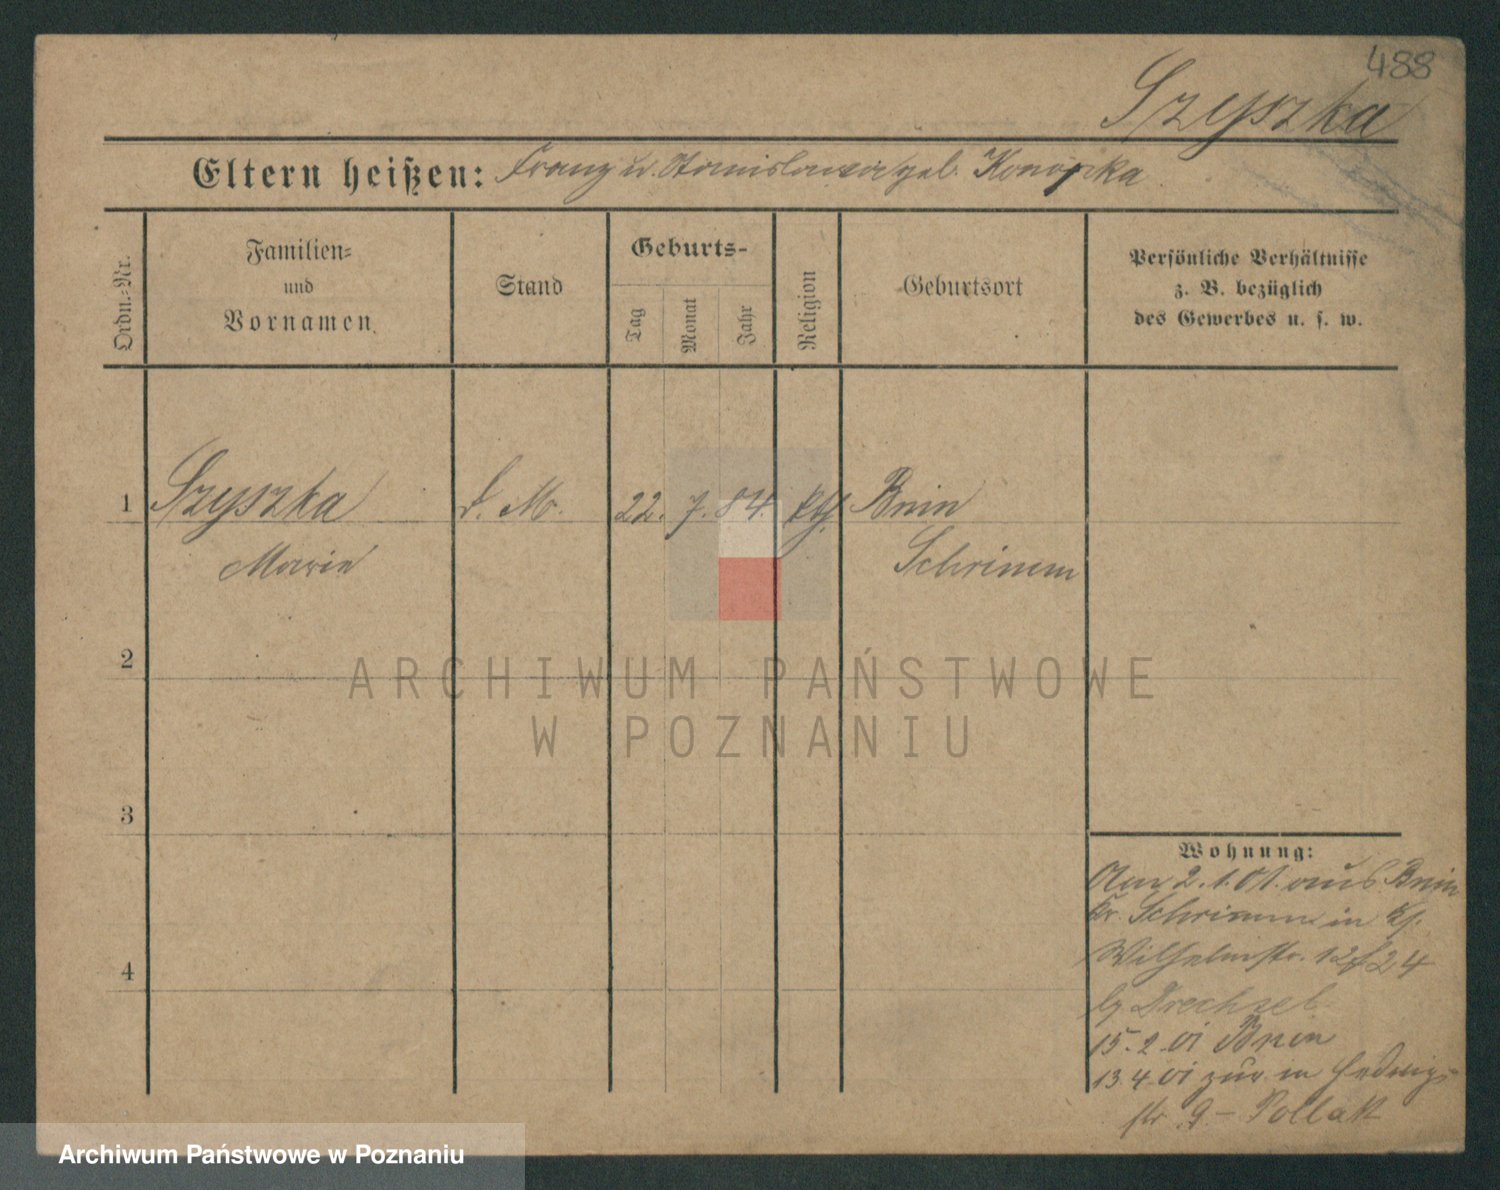 488
Szyszka
Eltern heißen: Franz u. Stanislawa geb. Konopka
Ordn.-Nr.
Familien-
und
Vornamen.
Stand
Geburts-
Tag
Monat
Jahr
Religion
Geburtsort
Persönliche Verhältnisse
z. B. bezüglich
des Gewerbes u. s. w.
1 Szyszka d. M. 22. 7. 84. kth. Bnin
Marie Schrimm
2
ARCHIWUM PAŃSTWOWE
W POZNANIU
3
4
Wohnung:
Am 2. 1. 01. aus Bnin
Kr. Schrimm in
Wilhelmstr. 24
Drechsel
15. 2. 01 Bnin
13. 4. 01 zur. in Hedwig-
str. 9 - Pollak
Archiwum Państwowe w Poznaniu